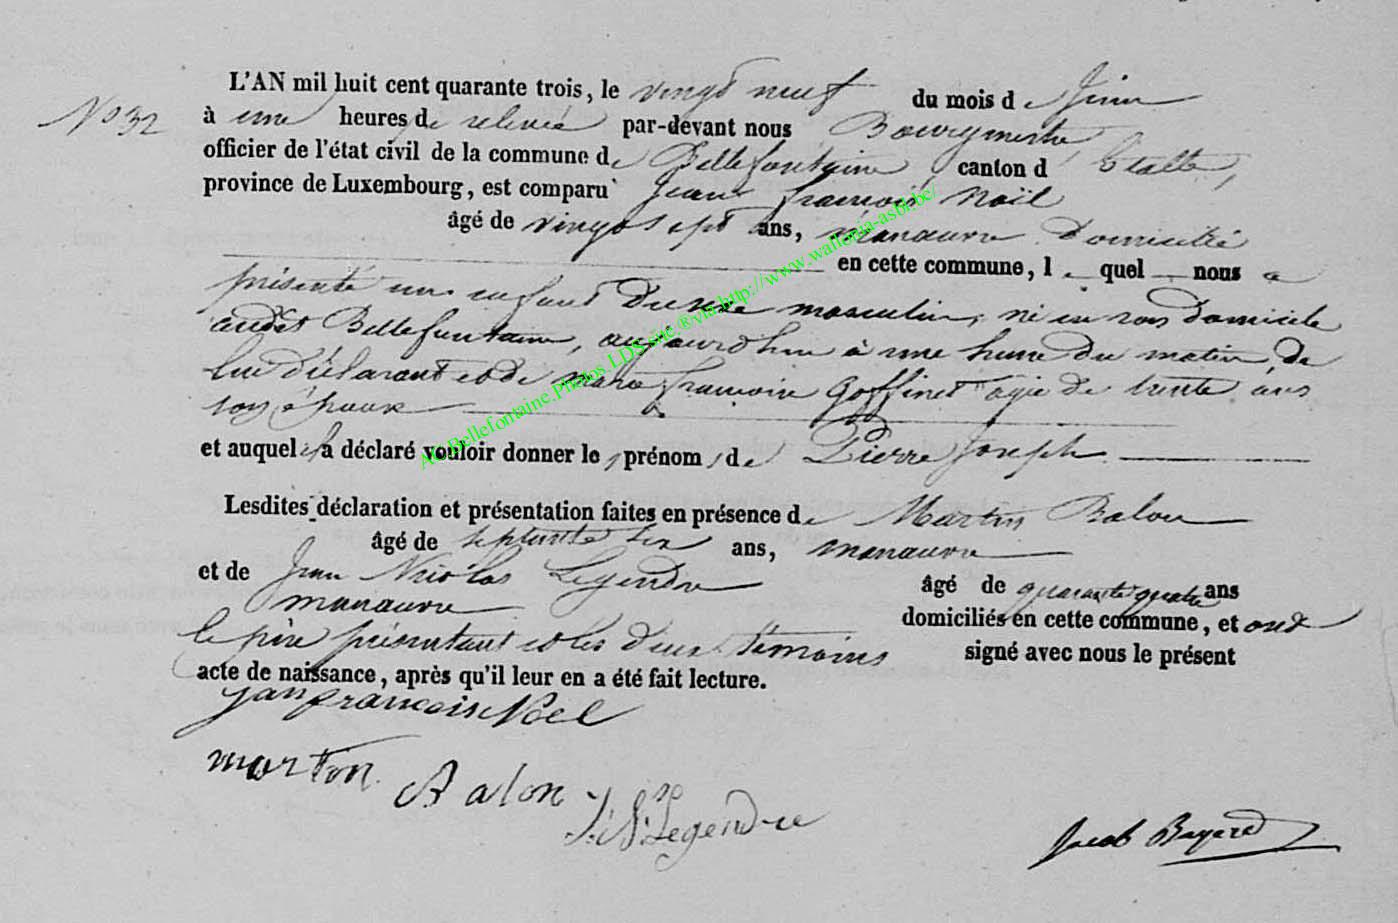 L'AN mil huit cent quarante trois, le vingt neuf du mois de Juin
No 32
à une heures de relevée par-devant nous Bourgmestre,
officier de l'état civil de la commune de Bellefontaine, canton d'Etalle,
province de Luxembourg, est comparu Jean François Noël
âgé de vingt sept ans, manœuvre domicilié
en cette commune, lequel nous a
présenté un enfant du sexe masculin, né en son domicile
audit Bellefontaine, aujourd'hui à une heure du matin, de
lui déclarant et de Marie françoise Goffinet agée de trente ans
son épouse
et auquel il a déclaré vouloir donner les prénoms de Pierre Joseph
Lesdites déclaration et présentation faites en présence de Martin Balon
âgé de septante six ans, manœuvre
et de Jean Nicolas Legendre âgé de quarante quatre ans
manœuvre domiciliés en cette commune, et ont
le père présentant et les deux témoins signé avec nous le présent
acte de naissance, après qu'il leur en a été fait lecture.
jan francois Noel
marton Balon
J: N: Legendre
Jacob Bayard
AC Bellefontaine.Photos LDS site ® via http://www.wallonia-asbl.be/